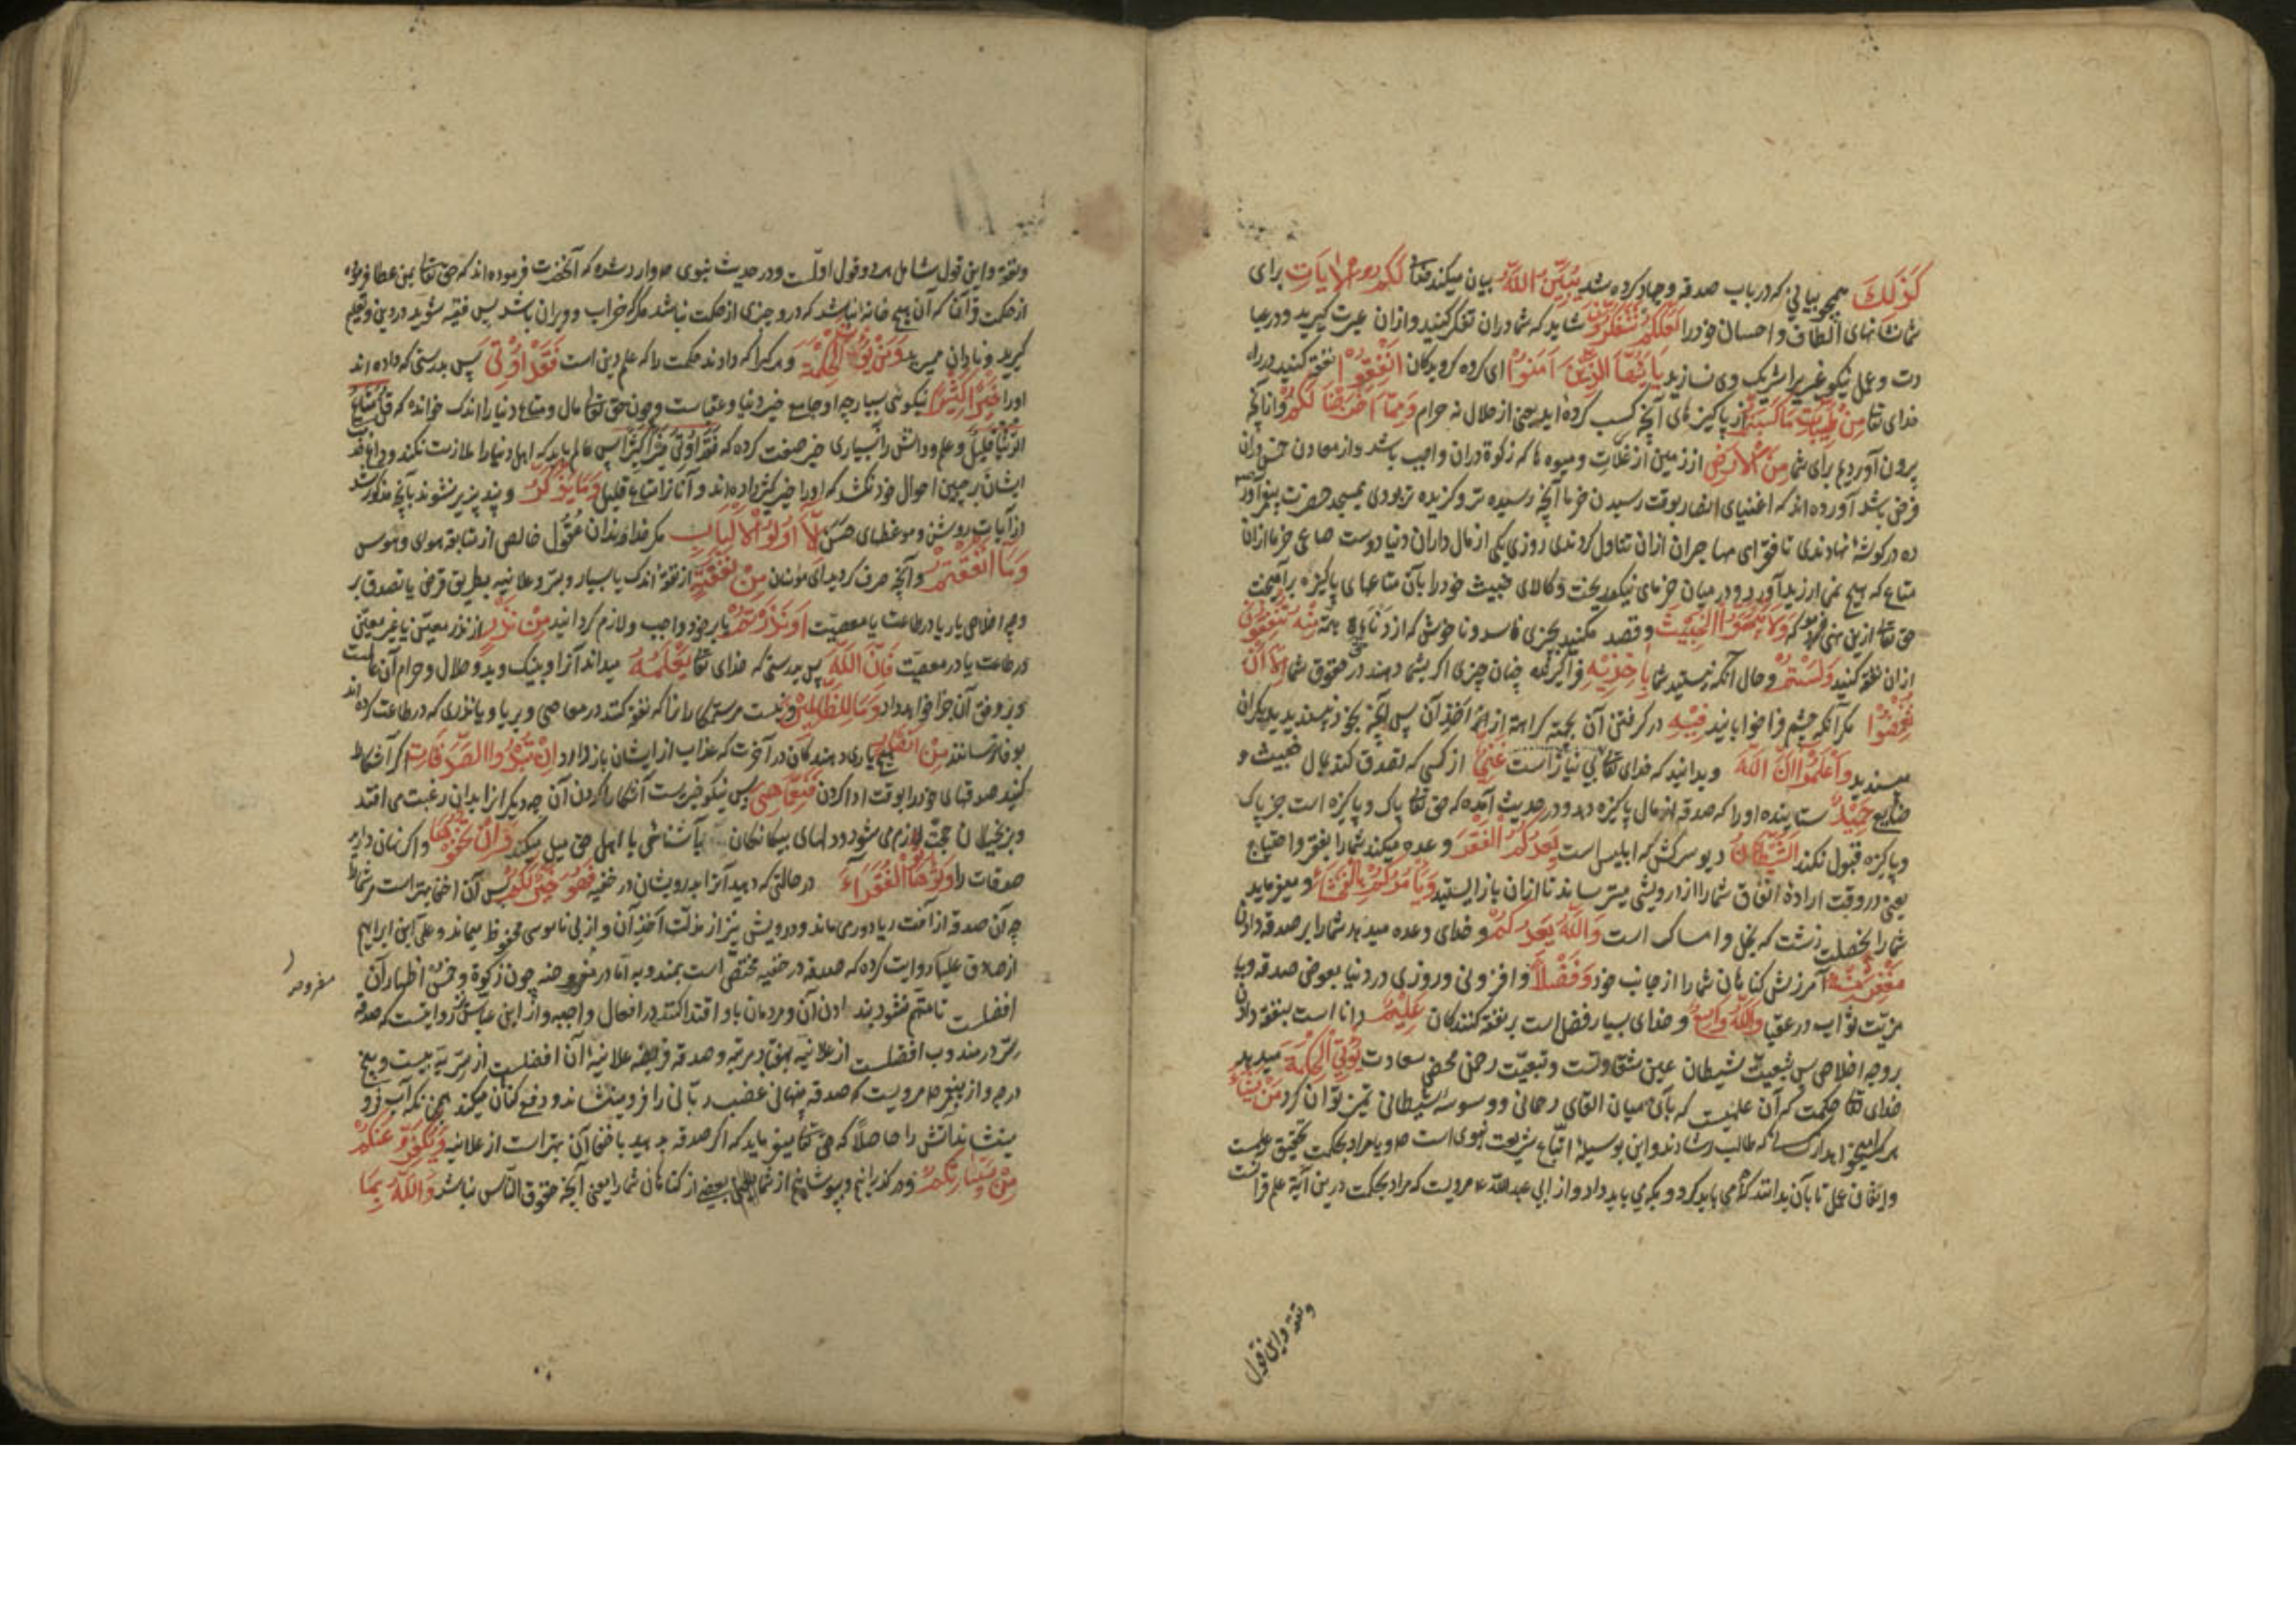 کَذَلِکَ همچو بیانی که در باب صدقه و جهاد کرده شد یُبَیِّنُ اللّهُ بیان میکند خدای تعا لَکُمُ الْآیَاتِ برای
شما نشانهای الطاف و احسان خود را لَعَلَّکُمْ تَتَفَکَّرُونَ شاید که شما در آن تفکر کنید و از آن عبرت گیرید و در عبا
دت و عمل نیکو غیر یرا شریک وی نسازید یَا اَیُّهَا الَّذِینَ آمَنُوا ای گروه گرویدگان اَنْفِقُوا نفقه کنید در راه
خدای تعا مِنْ طَیِّبَاتِ مَا کَسَبْتُمْ از پاکیزهای آنچه کسب کرده اید یعنی از حلال نه حرام وَمِمَّا اَخْرَجْنَا لَکُمْ و از آنچه
بیرون آوردیم برای شما مِنَ الْاَرْضِ از زمین از غلات و میوه ها که زکوة در آن واجب باشد و از معادن
فرض باشد آورده اند که اغنیای انصار بوقت رسیدن خرما آنچه رسیده تر و گزیده تر بودی بمسجد حضرت پیغمبر آور
ده در گوشه نهادندی تا فقرای مهاجران از آن تناول کردندی روزی یکی از مال داران دنیا دوست صاعی خرما از آن
متاع که بهیچ نمی ارزید آورد و در میان خرمای نیکو ریخت و کالای خبیث خود را با آن متاعهای پاکیزه بر آمیخت
حق تعا ازین نهی فرمود که وَلَا تَیَمَّمُوا الْخَبِیثَ و قصد مکنید بچیزی فاسد و ناخوش که از مِنْهُ تُنْفِقُونَ
از آن نفقه کنید وَلَسْتُمْ و حال آنکه نیستید شما بِآخِذِیهِ فرا گیرنده چنان چیزی اگر بشما دهند در حقوق شما اِلَّا اَنْ
تُغْمِضُوا مگر آنکه چشم فرا خوابانید فِیهِ در گرفتن آن بجهة کراهت از اخذ آن پس آنچه بخود نپسندید بدیگران
مپسندید وَاعْلَمُوا اَنَّ اللّهَ و بدانید که خدای تعا بی نیاز است غَنِیٌّ از کسی که تصدق کند بمال خبیث و
ضایع حَمِیدٌ ستاینده او را که صدقه از مال پاکیزه دهد و در حدیث آمده که حق تعا پاک و پاکیزه است جز پاک
و پاکیزه قبول نکند اَلشَّیْطَانُ دیو سرکش که ابلیس است یَعِدُکُمُ الْفَقْرَ وعده میکند شما را بفقر و احتیاج
یعنی در وقت اراده انفاق شما را از درویشی میترساند تا از آن باز ایستید وَیَأْمُرُکُمْ بِالْفَحْشَاءِ و میفرماید
شما را بخصلت زشت که بخل و امساک است وَاللّهُ یَعِدُکُمْ و خدای وعده میدهد شما را بر صدقه دادن
مَغْفِرَةً مِنْهُ آمرزش گناهان شما را از جانب خود وَفَضْلًا و افزونی و روزی در دنیا بعوض صدقه و یا
مزیت ثواب در عقبا وَاللّهُ وَاسِعٌ و خدای بسیار فضل است بر نفقه کنندگان عَلِیمٌ دانا است بنفقه دادن
بر وجه اخلاص پس تبعیت شیطان عین شقاوتست و تبعیت رحمن محض سعادت یُؤْتِی الْحِکْمَةَ میدهد
خدای تعا حکمت که آن علمیست که بآن میان القای رحمانی و وسوسه شیطانی تمیز توان کرد مَنْ یَشَاءُ
هر که میخواهد از کسانی که طالب رشادند و این بوسیله اتباع شریعت نبوی است ص و یا مراد بحکمت تحقیق علمست
و اتقان عمل تا بآن بدانند که چه می باید کرد و بکه می باید داد و از ابی عبدالله ع مرویست که مراد بحکمت درین آیه علم قرآنست
وتفقه و این قول
و تفقه و این قول شامل هر دو قول اولست و در حدیث نبوی ص وارد شده که آنحضرت فرموده اند که حق تعا بمن عطا فرموده
از حکمت قرآن که آن هیچ خانه نباشد که درو چیزی از حکمت نباشد مگر که خراب و ویران باشد پس فقیه شوید در دین و تعلیم
گیرید و نادان ممیرید وَمَنْ یُؤْتَ الْحِکْمَةَ و هر کرا که دادند حکمت را که علم دین است فَقَدْ اُوتِیَ پس بدرستی که داده اند
او را خَیْرًا کَثِیرًا نیکوئی بسیار چه او جامع خیر دنیا و عقباست و چون حق تعا مال و متاع دنیا را اندک خوانده که قُلْ مَتَاعُ
الدُّنْیَا قَلِیلٌ و علم و دانش را بسیاری خیر صفت کرده که فَقَدْ اُوتِیَ خَیْرًا کَثِیرًا پس عالم باید که اهل دنیا را ملازمت نکند
ایشان بر جبین احوال خود نکشد که او را خیر کثیر داده اند و آنان را متاع قلیل وَمَا یَذَّکَّرُ و پند پذیر نشوند بآنچه مذکور شد
از آیات روشن و موعظهای حسن اِلَّا اُولُوا الْاَلْبَابِ مگر خداوندان عقول خالص از شایبه هوای و هوس
وَمَا اَنْفَقْتُمْ و آنچه صرف کردید ای مؤمنان مِنْ نَفَقَةٍ از نفقه اندک یا بسیار و بسر و علانیه بطریق فرض یا تصدق بر
وجه اخلاص یا ریا در طاعت یا معصیت اَوْ نَذَرْتُمْ یا بر خود واجب و لازم گردانید مِنْ نَذْرٍ از نذر معین یا غیر معین
در طاعت یا در معصیت فَاِنَّ اللّهَ پس بدرستی که خدای تعا یَعْلَمُهُ میداند آنرا و نیک و بد و حلال و حرام آن
و بر وفق آن جزا خواهد داد وَمَا لِلظَّالِمِینَ و نیست مر ستمکاران را که نفقه کنند در معاصی و بریا و یا نذری که در طاعت کرده اند
بوفا نرسانند مِنْ اَنْصَارٍ هیچ یاری دهندگان در آخرت که عذاب از ایشان باز دارد اِنْ تُبْدُوا الصَّدَقَاتِ اگر آشکارا
کنید صدقهای خود را بوقت ادا کردن فَنِعِمَّا هِیَ پس نیکو خیریست آشکارا کردن آن چه دیگرانرا بدان رغبت می افتد
و بر بخیلان حجت لازم می شود و دلهای بیگانگان بآشنائی با اهل حق میل میکند وَاِنْ تُخْفُوهَا و اگر نهان دارید
صدقات را وَتُؤْتُوهَا الْفُقَرَاءَ در حالتی که دهید آنرا بدرویشان در خفیه فَهُوَ خَیْرٌ لَکُمْ پس آن اخفا بهتر است مر شما را
چه آن صدقه از آفت ریا دور می ماند و درویش نیز از مذلت اخذ آن و از بی ناموسی محفوظ میماند و علی ابن ابراهیم
از صادق علیه روایت کرده که صدقه در خفیه مختص است بمندوبه اما در مفروضه چون زکوة و خمس اظهار آن
مفروضه
افضلست تا متهم نشود بندادن آن و مردمان باو اقتدا کنند در افعال واجبه و از ابن عباس روایتست که صدقه
سر در مندوب افضلست از علانیه بهفتاد مرتبه و صدقه فریضه علانیه آن افضلست از سریه به بیست و پنج
درجه و از پیغمبر ص مرویست که صدقه پنهانی غضب ربانی را فرو مینشاند و دفع گناهان میکند همچنانکه آب فرو
مینشاند آتش را حاصلا که حق تعا میفرماید که اگر صدقه بدهید باخفا آن بهتر است از علانیه وَیُکَفِّرُ عَنْکُمْ
مِنْ سَیِّئَاتِکُمْ و در گذرانیم و بپوشانیم از شما بعضی از گناهان شما را یعنی آنچه حقوق الناس نباشد وَاللّهُ بِمَا